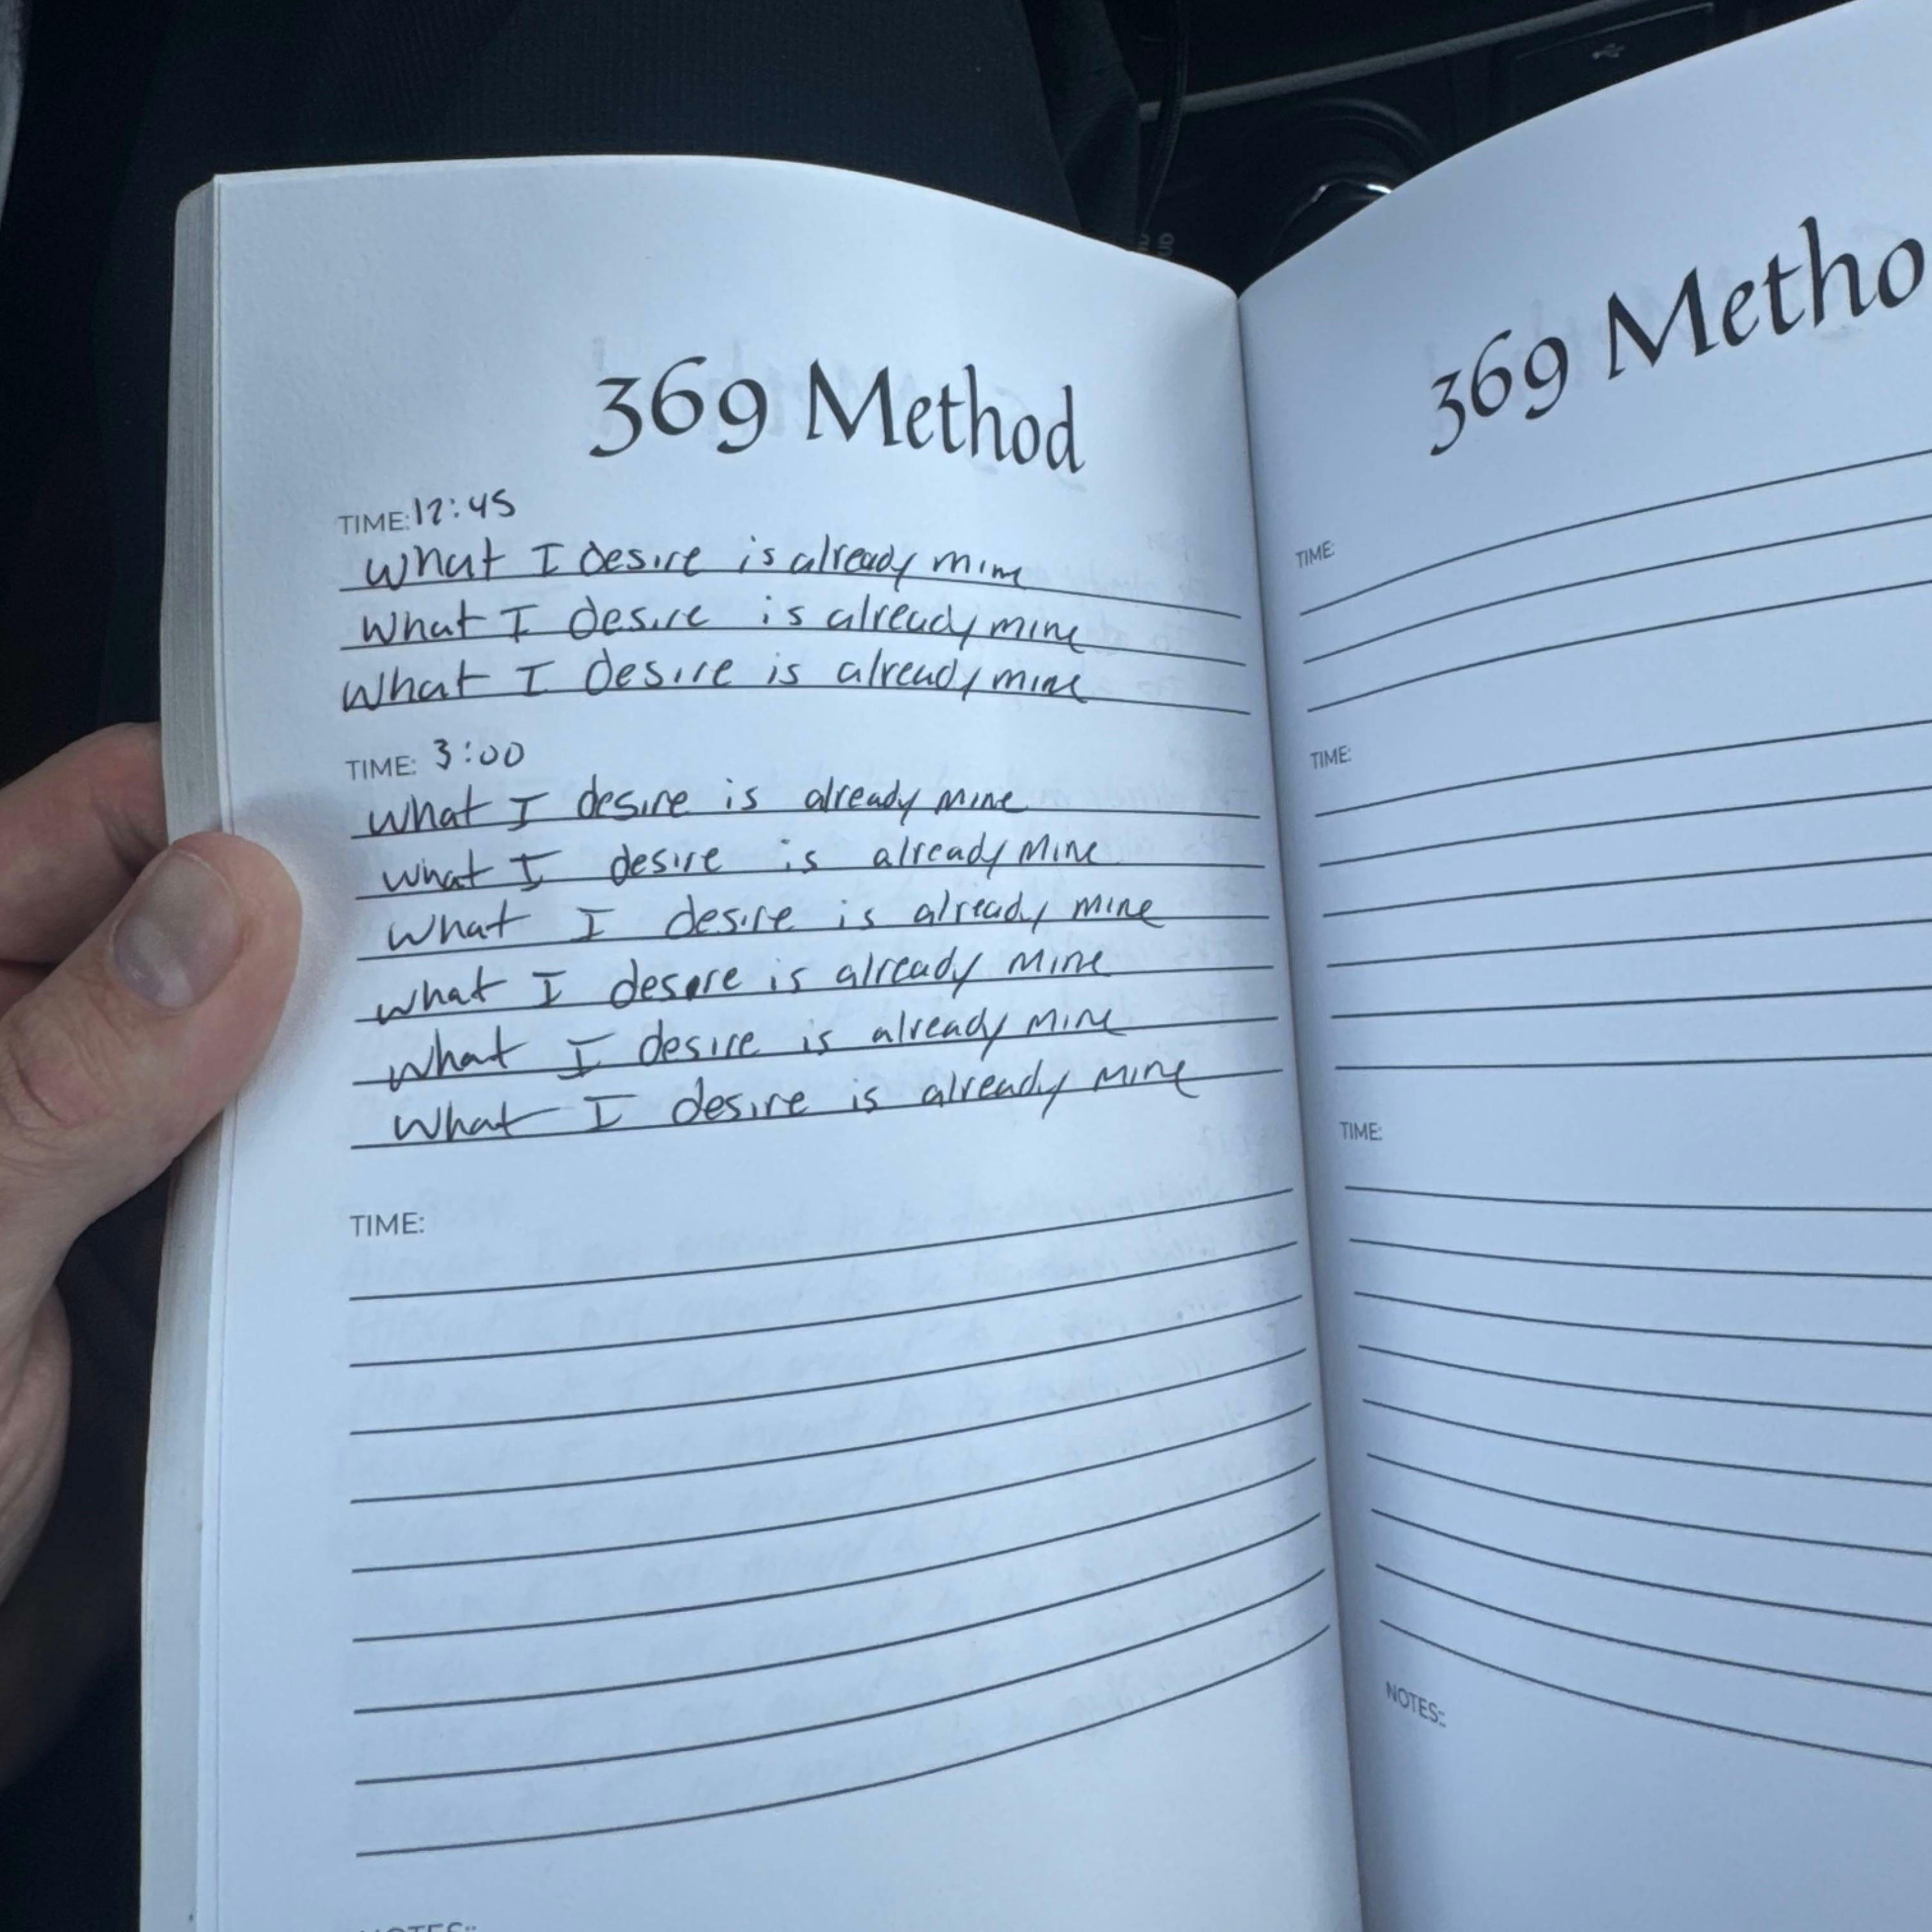 369 Method
TIME: 12:45
What I desire is already mine
What I desire is already mine
What I desire is already mine
TIME: 3:00
What I desire is already mine
What I desire is already mine
What I desire is already mine
What I desire is already mine
What I desire is already mine
What I desire is already mine
TIME:
NOTES:
369 Metho
TIME:
TIME:
TIME:
NOTES: